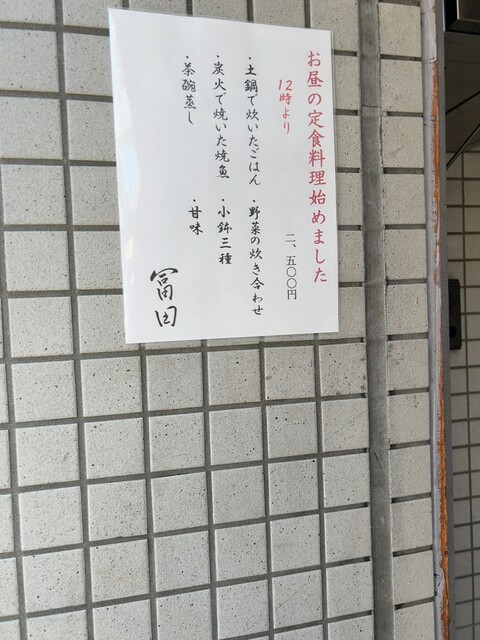 お昼の定食料理始めました
12時より
二、五〇〇円
・土鍋で炊いたごはん
・野菜の炊き合わせ
・炭火で焼いた焼魚
・小鉢三種
・茶碗蒸し
・甘味
冨田